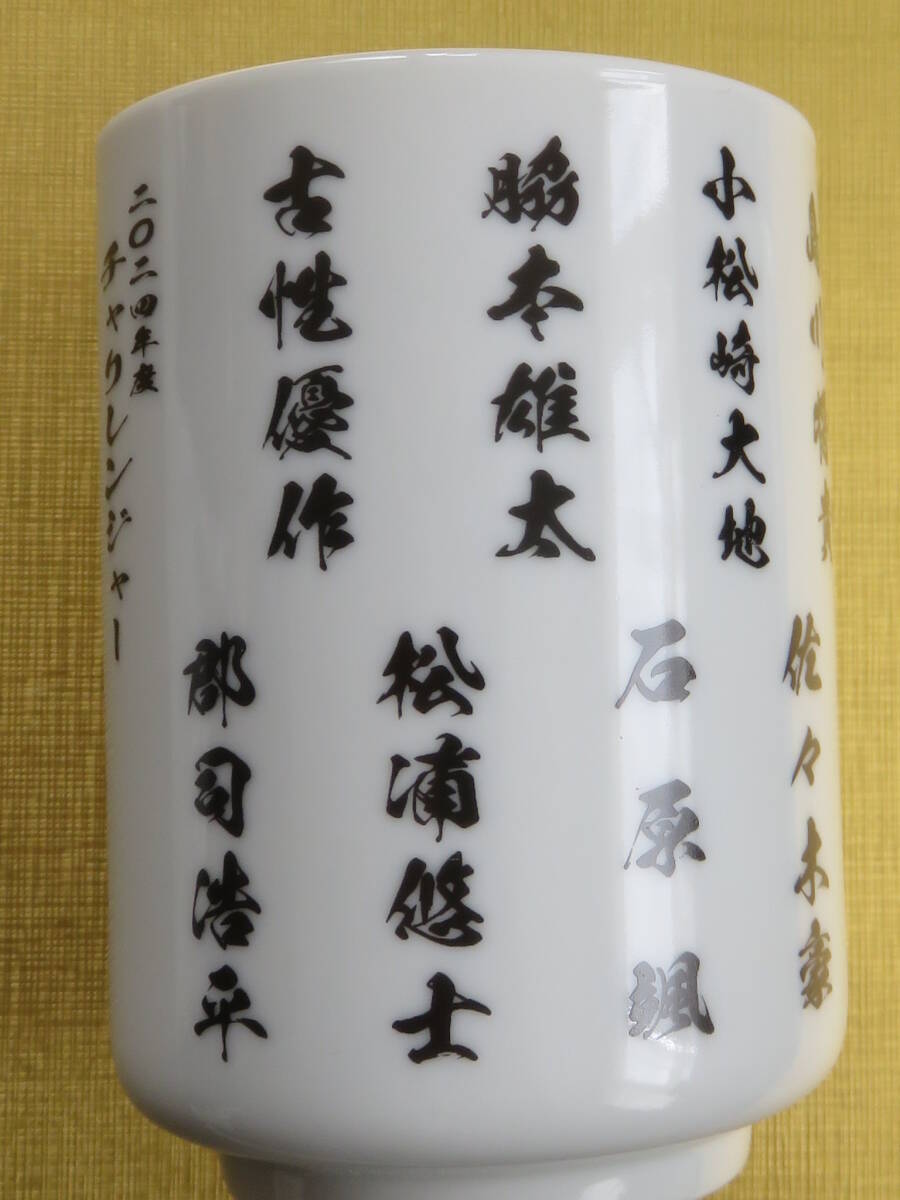 島川将貴
小松崎大地
脇本雄太
古性優作
佐々木豪
石原颯
松浦悠士
郡司浩平
二〇二四年度
チャリレンジャー